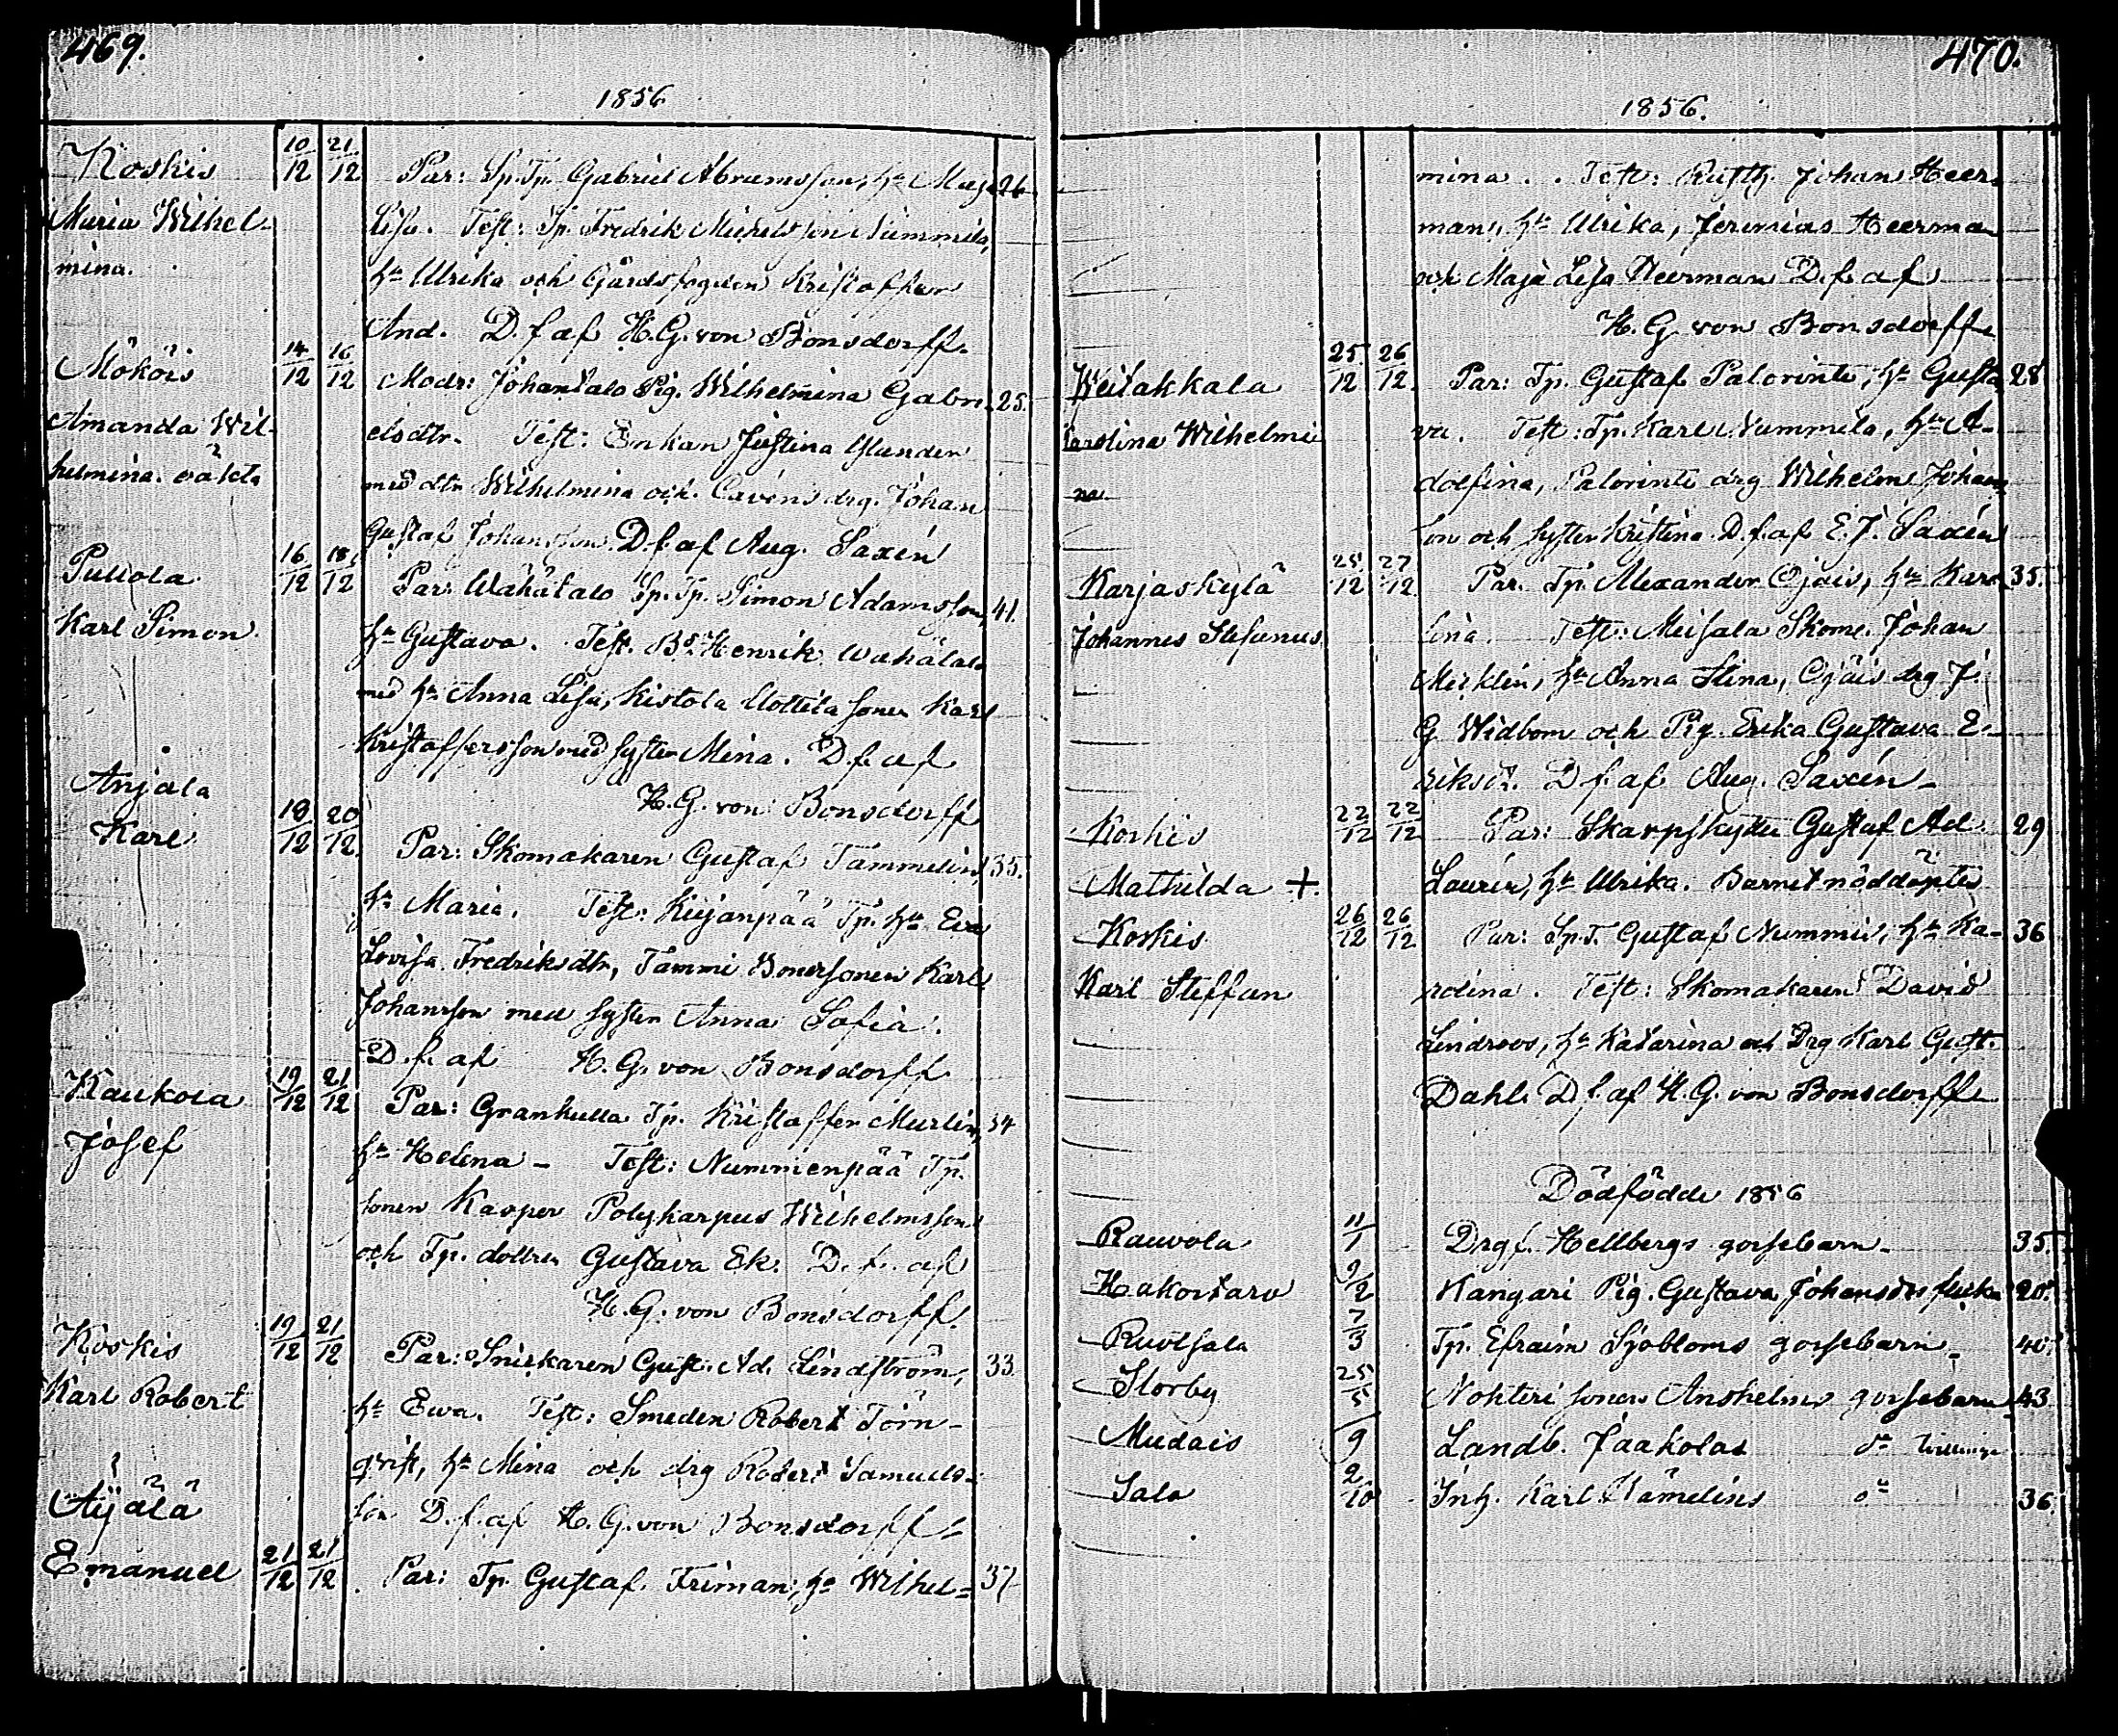 469.
1856
Koskis 10/12 21/12 Par: Sp. Tp. Gabriel Abramsson, hu Maja 26
Maria Wilhel- Lisa. Test: Sp. Fredrik Michelsson Nummila,
mina. hu Ulrika och Gårdsfogden Kristoffer
And. D.f. af H.G. von Bonsdorff.
Mököis 14/12 16/12 Modr: Johantalo Pig. Wilhelmina Gabri- 25.
Amanda Wil- elsdtr. Test: Enkan Justina
helmina oäkta med dtr Wilhelmina och drg. Johan
Gustaf Johansson. D.f. af Aug. Saxén
Pullola 16/12 18/12 Par: Wähätalo Sp. Tp. Simon Adamsson, 41.
Karl Simon. hu Gustava. Test. Bs Henrik Wähätalo
med hu Anna Lisa, Kistola sonen Karl
Kristaffersson med syster Mina. D.f. af
H.G. von Bonsdorff
Anjala
Karl 19/12 20/12. Par: Skomakaren Gustaf Tammelin, 35.
hu Maria. Test: Kujanpää Tp. hu Eva
Lovisa Fredriksdtr, Tammi Bonersonen Karl
Johansson med syster Anna Sofia.
D.f. af H.G. von Bonsdorff
Kaukola 19/12 21/12 Par: Grankulla Tp. Kristaffer Murlin, 34
Josef hu Helena - Test: Nummenpää Tp.
sonen Kasper Polykarpus Wilhelmsson
och Tp. dottren Gustava Ek. D.f. af
H.G. von Bonsdorff.
Koskis 19/12 21/12 Par: Snickaren Gust. Ad. Lindström, 33.
Karl Robert hu Ewa. Test: Smeden Robert Törn-
qvist, hu Mina och drg Robert Samuels-
Äijälä son D.f. af H.G. von Bonsdorff
Emanuel 21/12 21/12. Par: Tp. Gustaf Friman, hu Wilhel- 37
470.
1856.
mina. Test: Rusth. Johan Heer-
man, hu Ulrika, Jeremias Heerman
och Maja Lisa Heerman D.f. af
H.G. von Bonsdorff
Weitakkala 25/12 26/12. Par: Tp. Gustaf Palorinte, hu Gusta- 28
Karolina Wilhelmi- va. Test: Tp. Karl Nummila, hu A-
na dolfina, Palorinte drg Wilhelm Johans-
son och syster Kristina. D.f. af E.J. Saxén
Karjaskylä 25/12 27/12. Par. Tp. Alexander Ojais, hu Karo- 35.
Johannes Stefanus lina. Test: Meisala Skom. Johan
Micklin, hu Anna Stina, Ojais drg J.
G Widbom och Pig. Erika Gustava E-
riksdr. D.f. af Aug. Saxén -
Koskis 22/12 22/12 Par: Skarpskytten Gustaf Ad. 29
Mathilda + Laurén, hu Ulrika. Barnet nöddöptes
Koskis 26/12 26/12 Par: Sp. T. Gustaf Nummis, hu Ka- 36
Karl Steffan rolina. Test: Skomakaren David
Lindroos, hu Katarina och Drg Karl Gust.
Dahl. D.f. af H.G. von Bonsdorff
Dödfödde 1856
Rauvola 11/1 Drgf. Hellbergs gossebarn 35.
Hakostaro 9/2 Kangari Pig. Gustava Johansdrs flicka 20.
Ruotsala 7/3 Tp. Efraim Sjobloms gossebarn 40.
Storby 25/5 Nohteri sonen Anshelms gossebarn 43
Mudais /9 Landb. Jaakolas do
Salo 2/10 Inh. Karl do 36.